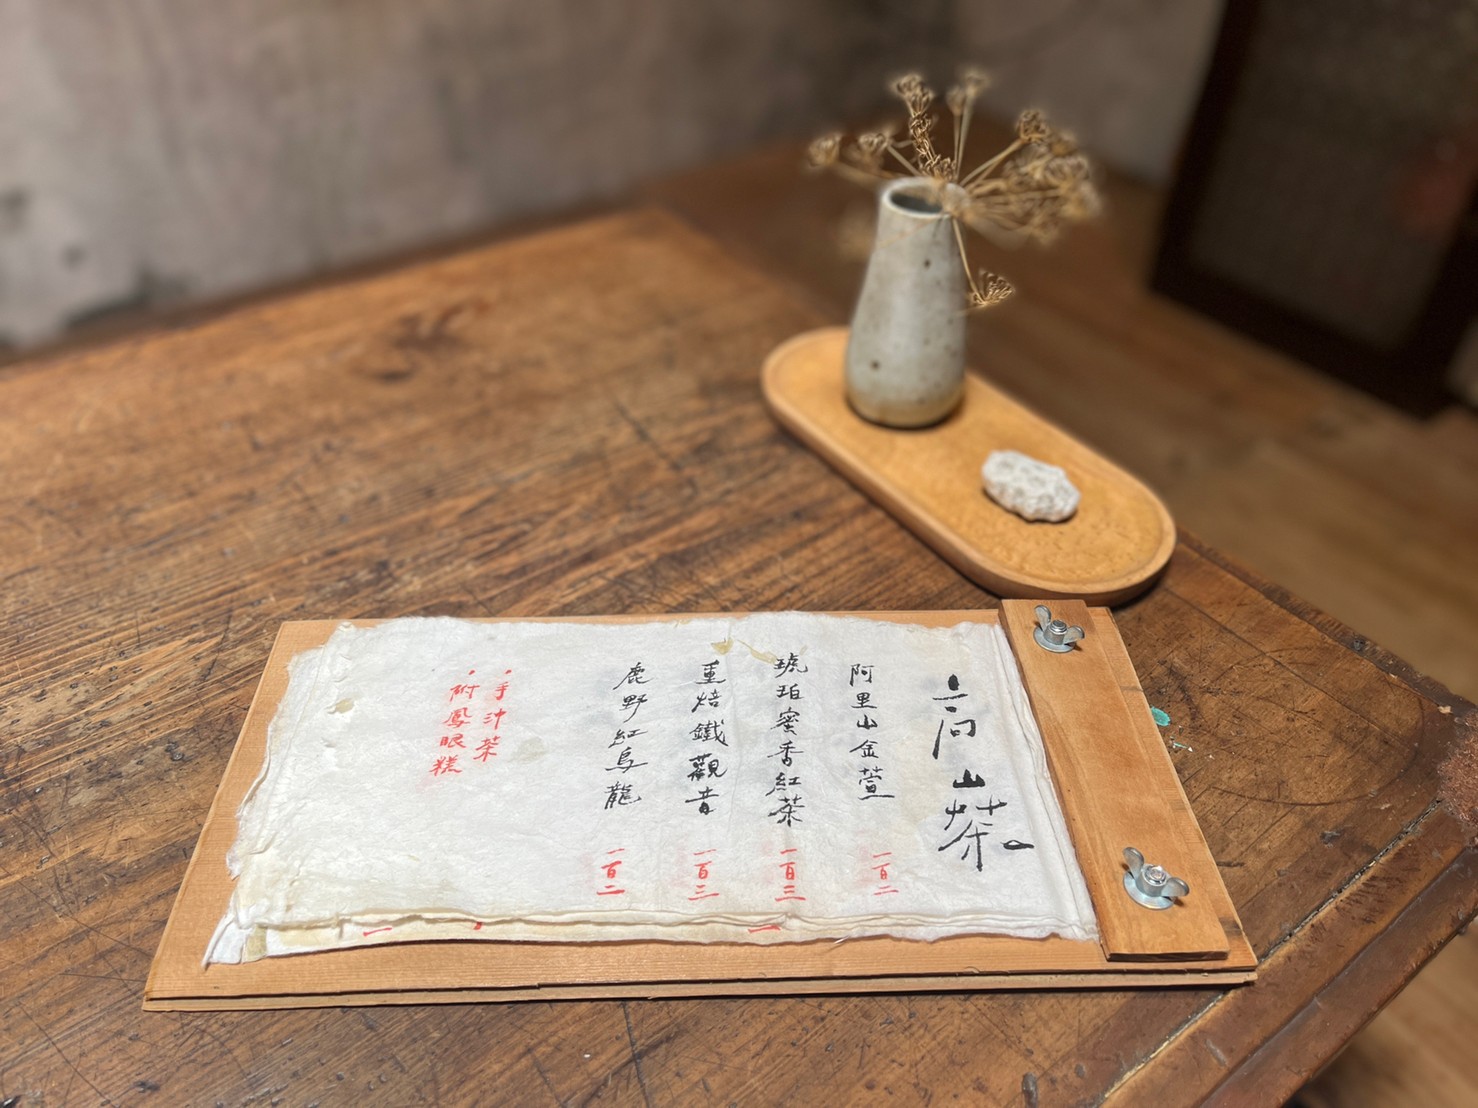 高山茶
阿里山金萱 一百二
琥珀蜜香紅茶 一百三
重焙鐵觀音 一百三
鹿野紅烏龍 一百二
・手沖茶
・附鳳眼糕